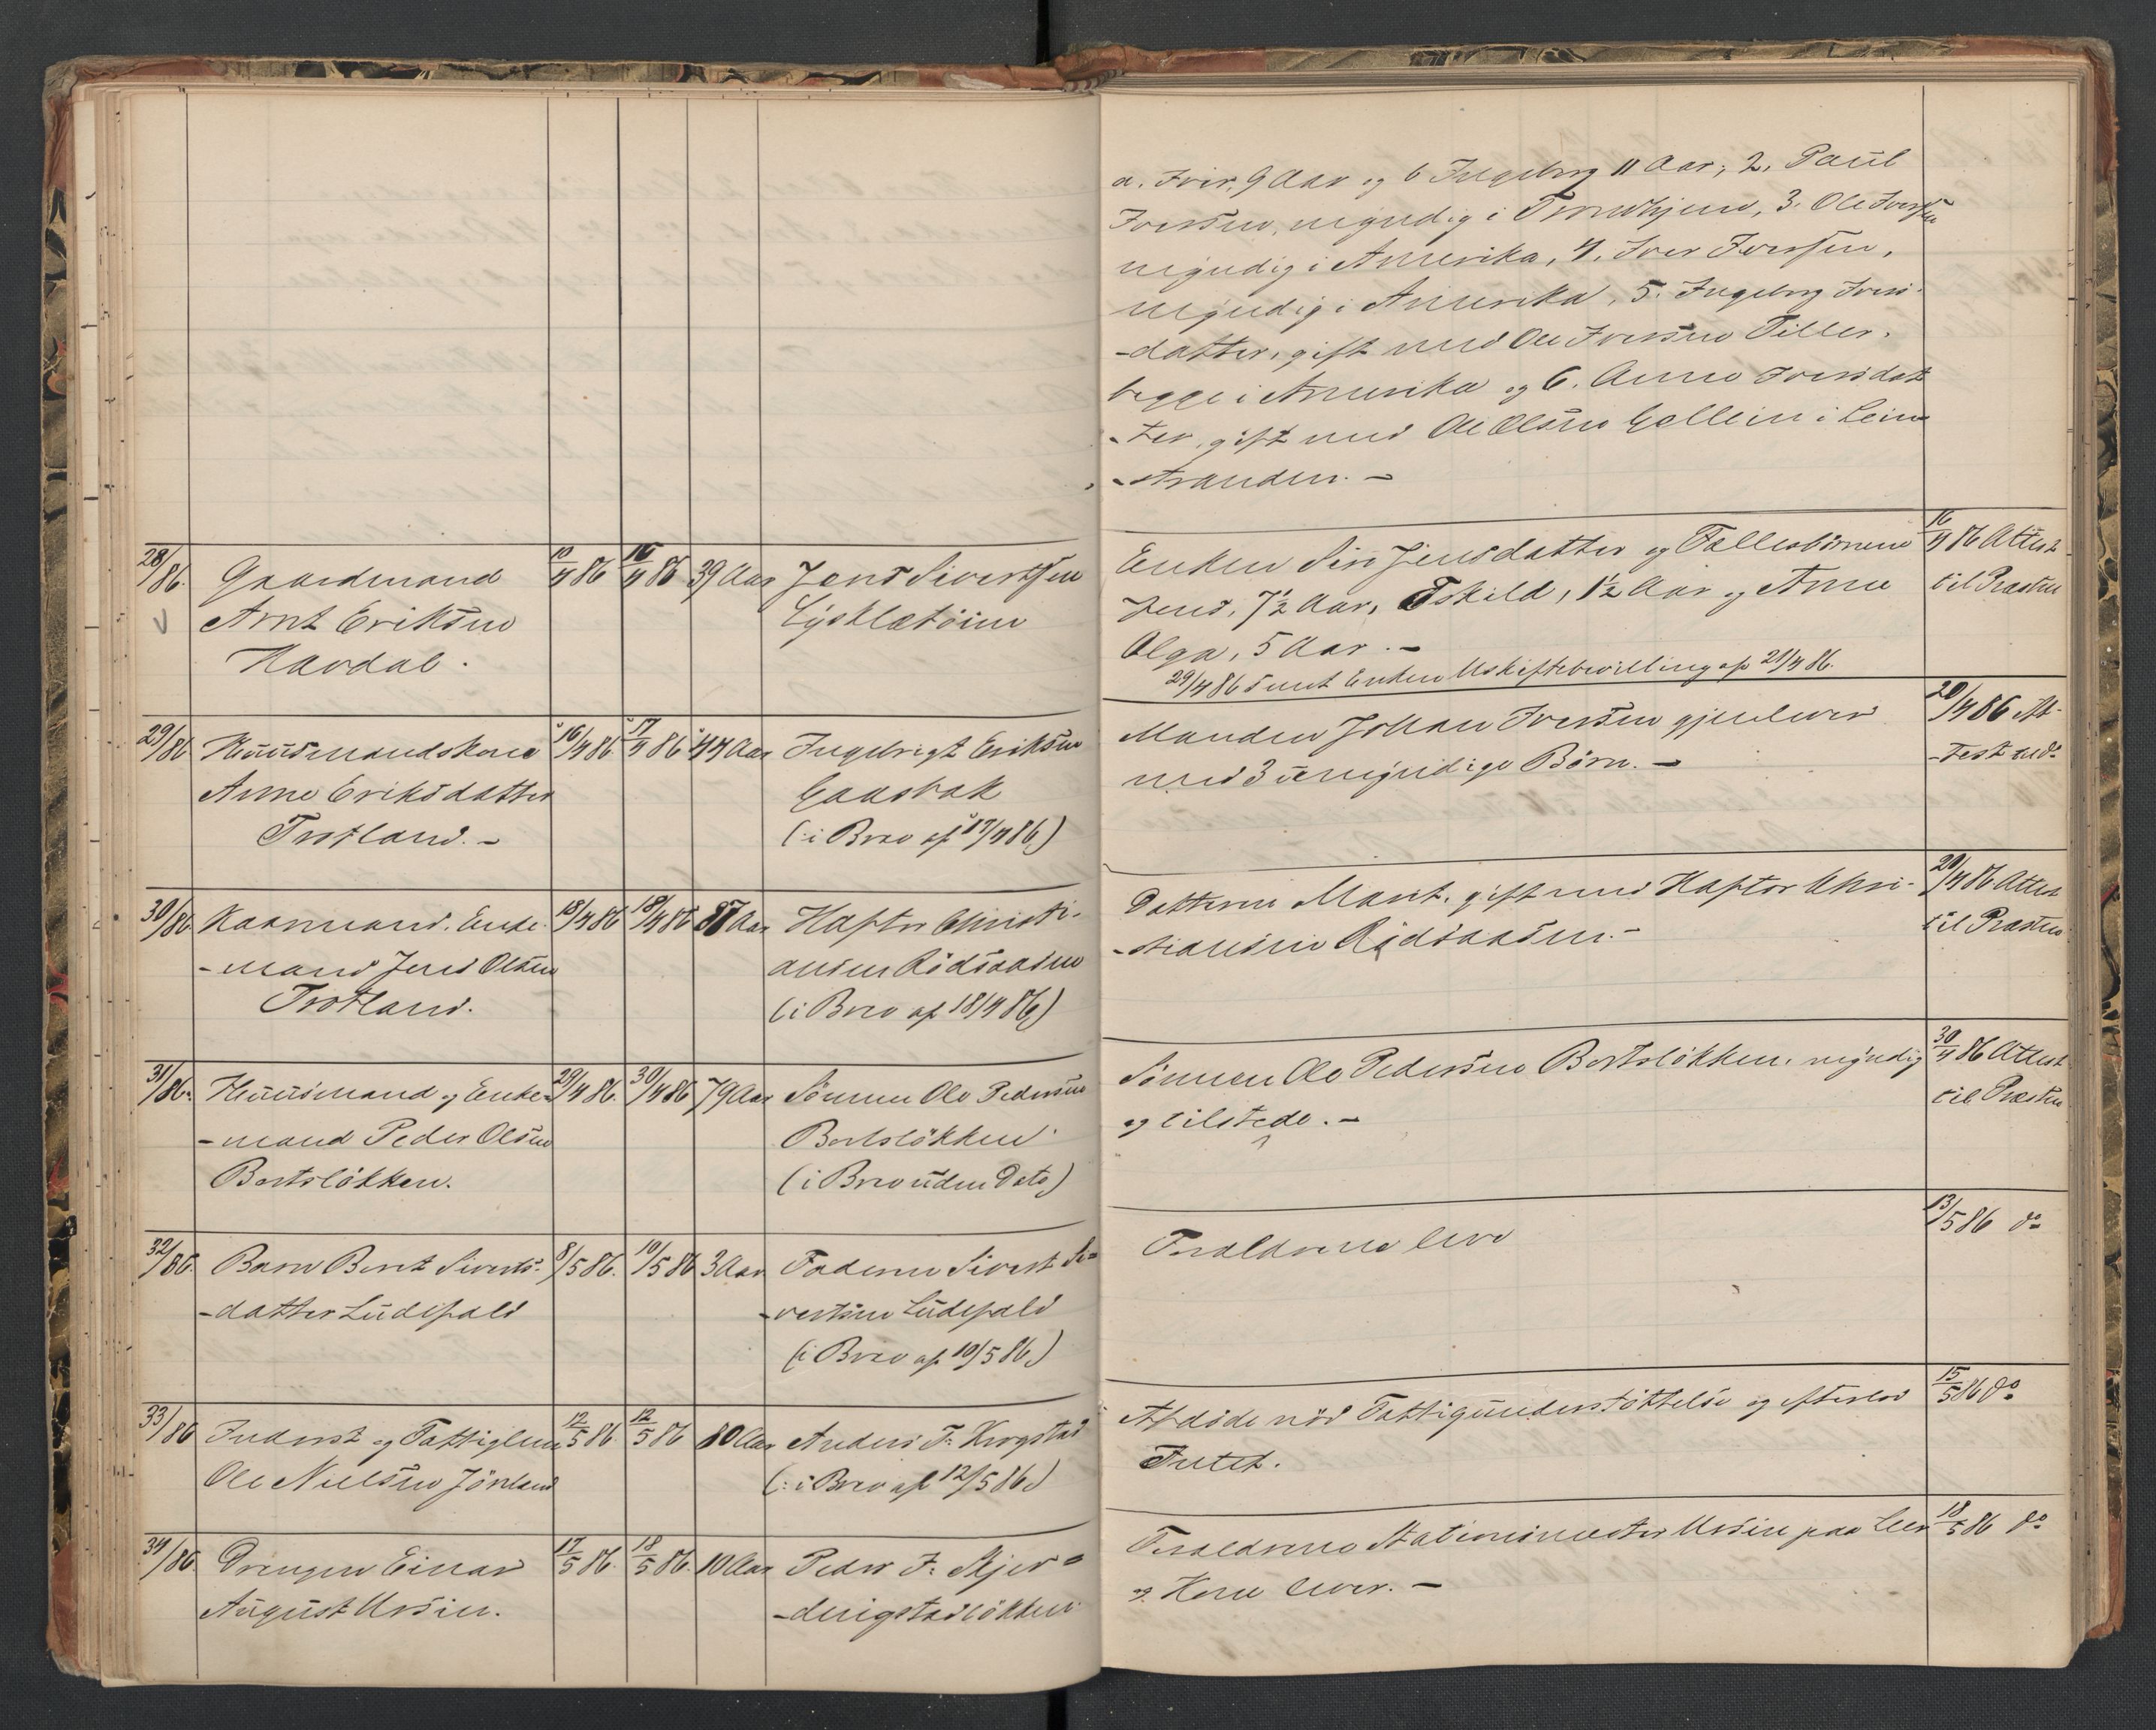 a. Iver, 9 Aar og b Ingeborg 11 Aar; 2, Paul
Iverssen, myndig i Trondhjem, 3. Ole Iverssen
myndig i Amerika, 4. Iver Iverssen,
myndig i Amerika, 5. Ingeborg Ivers-
-datter, gift med Ole Iverssen Tiller,
begge i Amerika og 6. Anne Iversdat
-ter, gift med Ole Olsen i Lein
-stranden. -
28/86. Gaardmand
Arnt Eriksen
Havdal.
10/4 86 16/4 86 39 Aar Jens Sivertsen
Lysklætöien
Enken Siri Jensdatter og Fællesbörnene
Jens, 7½ Aar, Eskild, 1½ Aar og Anne
Olga, 5 Aar. -
29/4 86 sendt Enken Uskiftebevilling af 21/4 86.
16/4 86 Attest
til Præsten
29/86 Huusmandskone
Anne Eriksdatter
Trotland. -
16/4 86 17/4 86 44 Aar Ingebrigt Eriksen
Gaasbak
(: i Brev af 17/4 86)
Manden Johan Iverssen gjenlever
med 3 umyndige Börn. -
20/4 86 At-
-test do
30/86 Kaarmand, Enke-
-mand Jens Olsen
Trotland.
18/4 86 18/4 86 87 Aar Haftor Christi-
ansen Rödsaasen
(i Brev af 18/4 86)
Datteren Marit, gift med Haftor Chri-
-stiansen Rödsaasen. -
20/4 86 Attest
til Præsten
31/86. Huusmand og Enke-
-mand Peder Olsen
Bortslökken.
29/4 86. 30/4 86 79 Aar Sönnen Ole Pedersen
Bortslökken
(i Brev uden Dato)
Sönnen Ole Pedersen Bortslökken, myndig
og tilstede. -
30/4 86 Attest
til Præsten
32/86. Barn Berit Siverts-
-datter Ludifald
8/5 86. 10/5 86 3 Aar Faderen Sivert Si=
-vertsen Ludefald
(i Brev af 10/5 86)
Forældrene leve
13/5 86 do
33/86 Inderst og Fattiglem
Ole Nielsen Jönland
12/5 86. 12/5 86 80 Aar Anders T. Krogstad
(: i Brev af 12/5 86)
Afdöde nöd Fattigunderstöttelse og efterlod
Intet.
15/5 86 do
34/86. Drengen Einar
August Ursin.
17/5 86. 18/5 86. 10 Aar Peder J. Skjer=
-dingstadlökken
Forældrene Stationsmester Ursin paa Leer
og Kone lever. -
18/5 86 do